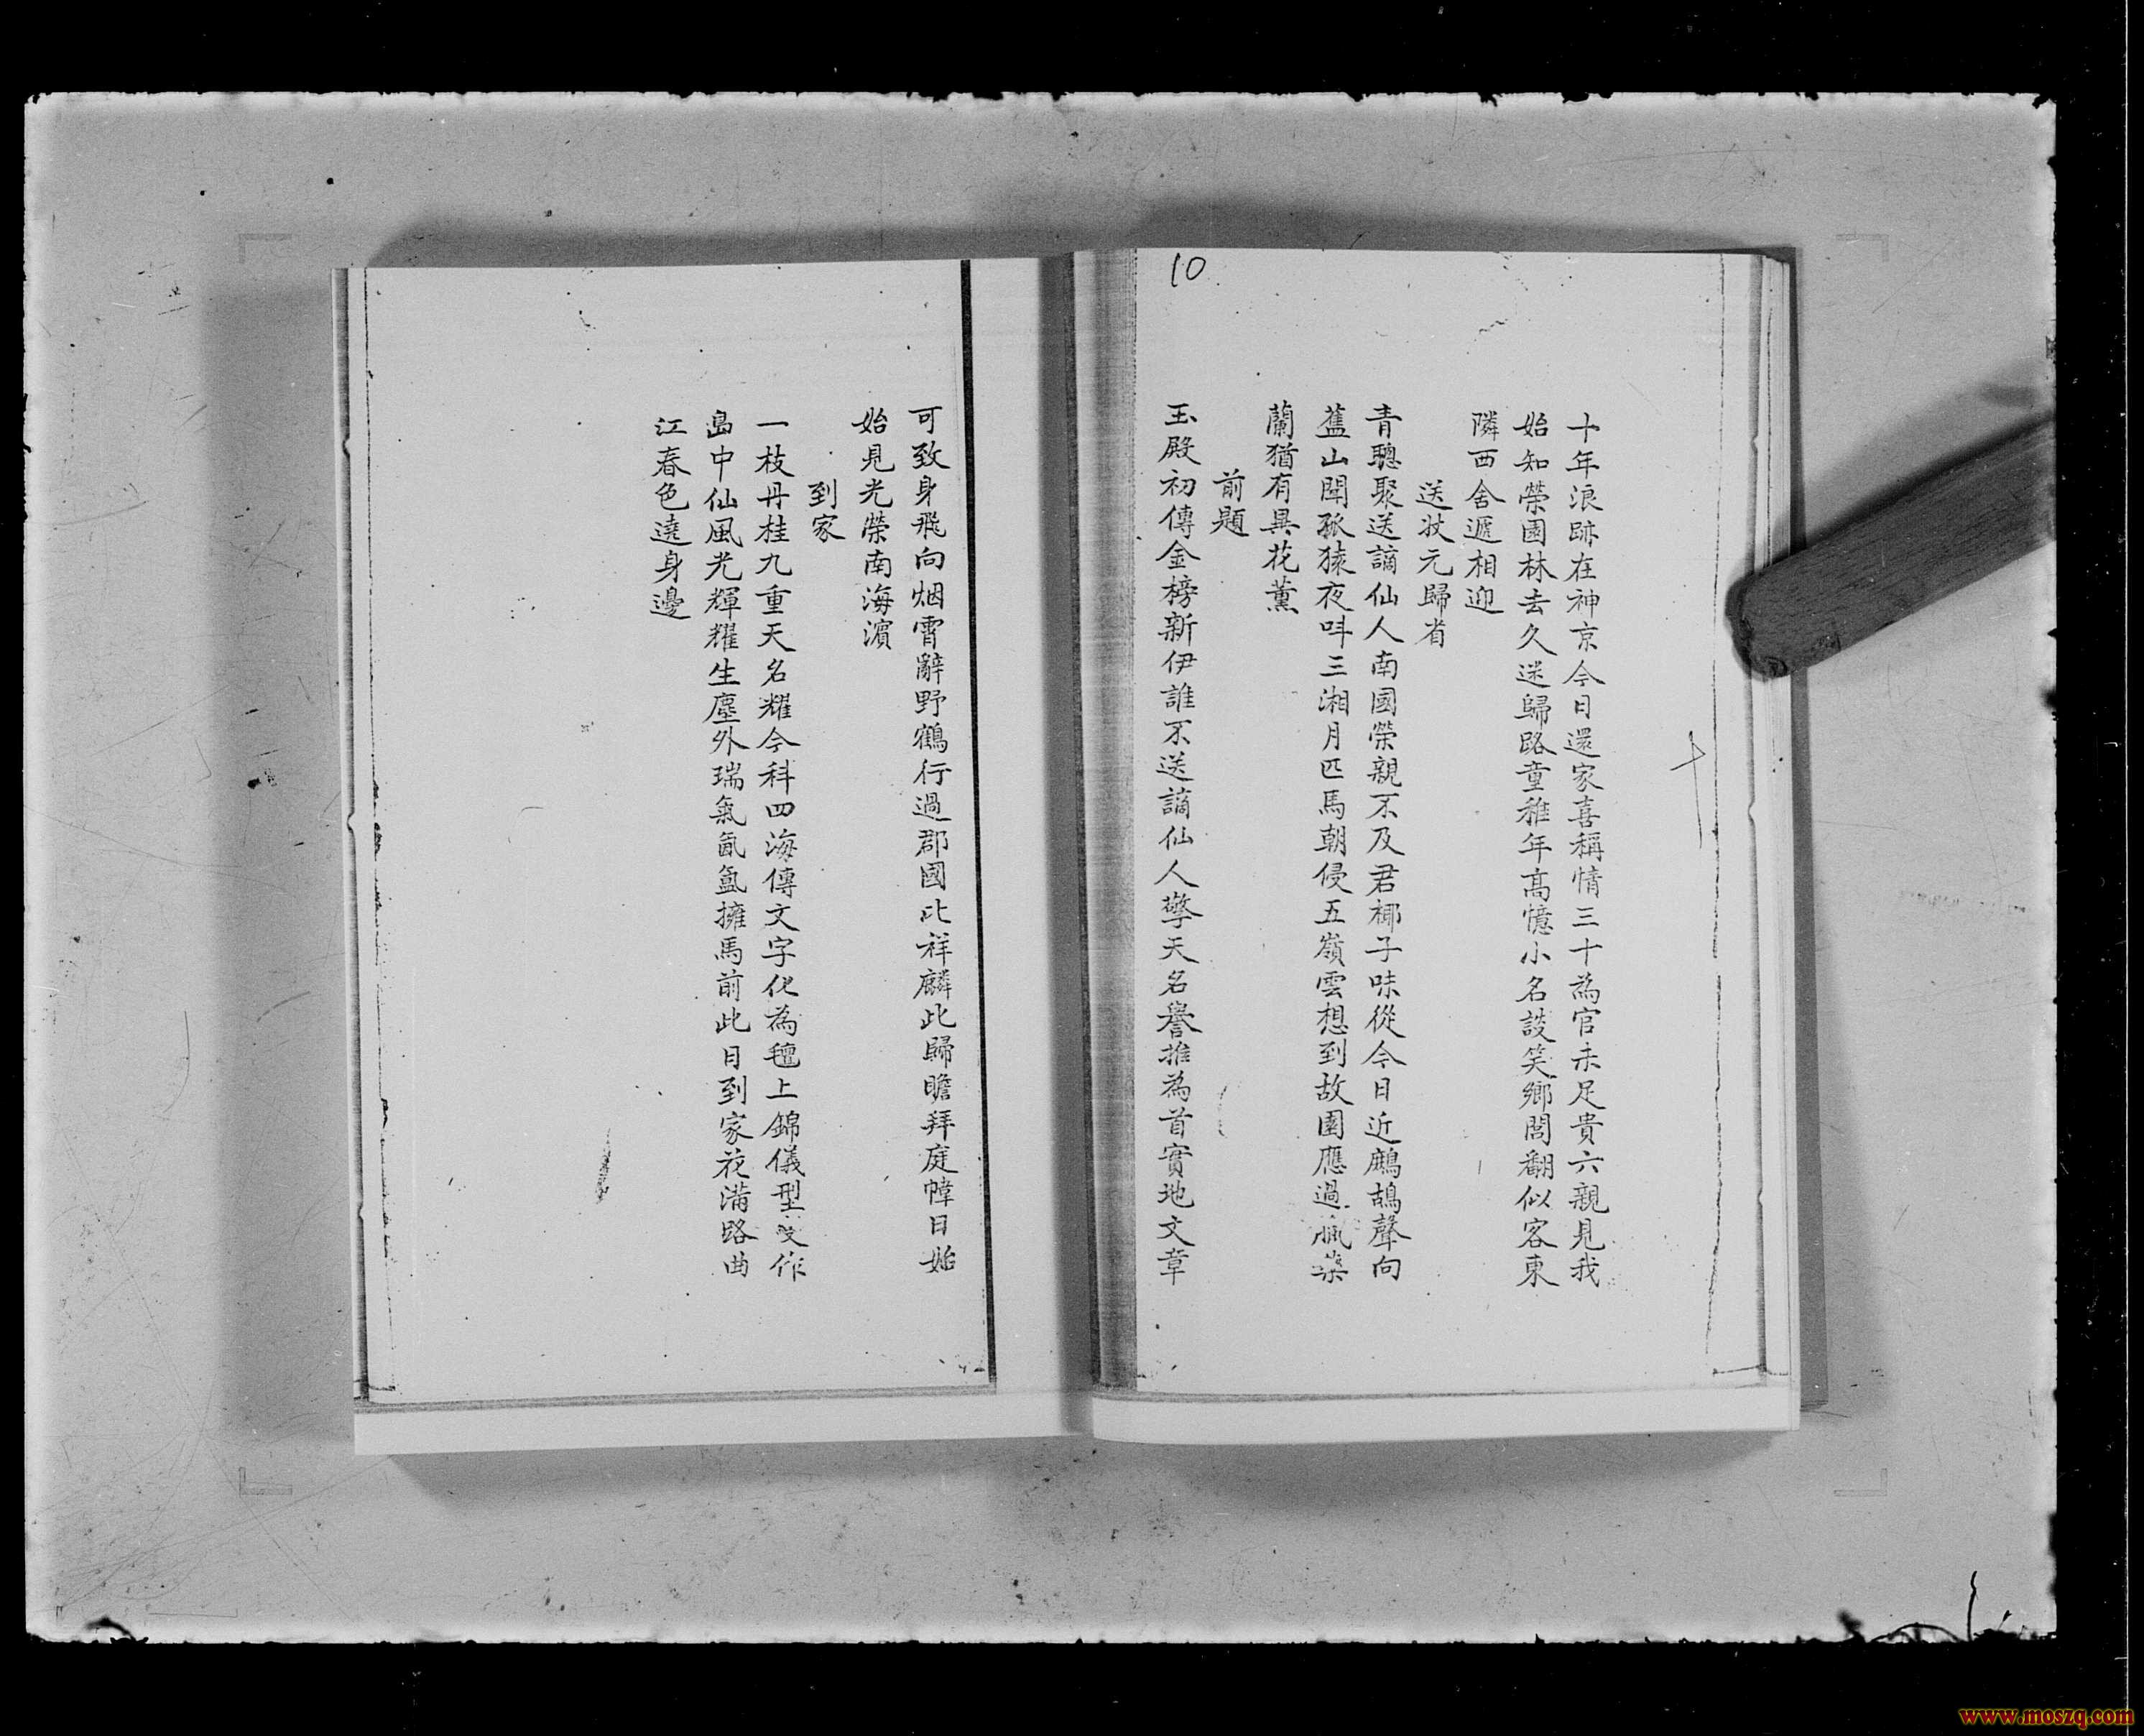 10
十
十年浪跡在神京今日還家喜稱情三十為官未足貴六親見我
始知榮園林去久迷歸路童稚年高憶小名談笑鄉閭翻似客東
隣西舍遞相迎
送狀元歸省
青驄聚送謫仙人南國榮親不及君椰子味從今日近鷓鴣聲向
舊山聞孤猿夜呌三湘月匹馬朝侵五嶺雲想到故園應過
蘭猶有異花薰
前題
玉殿初傳金榜新伊誰不送謫仙人擎天名譽推為首實地文章
可致身飛向烟霄辭野鶴行過郡國比祥麟此歸瞻拜庭幃日始
始見光榮南海濵
到家
一枝丹桂九重天名耀今科四海傳文字化為氊上錦儀型作
島中仙風光輝耀生塵外瑞氣氤氳擁馬前此日到家花滿路曲
江春色遶身邊
www.moszq.com